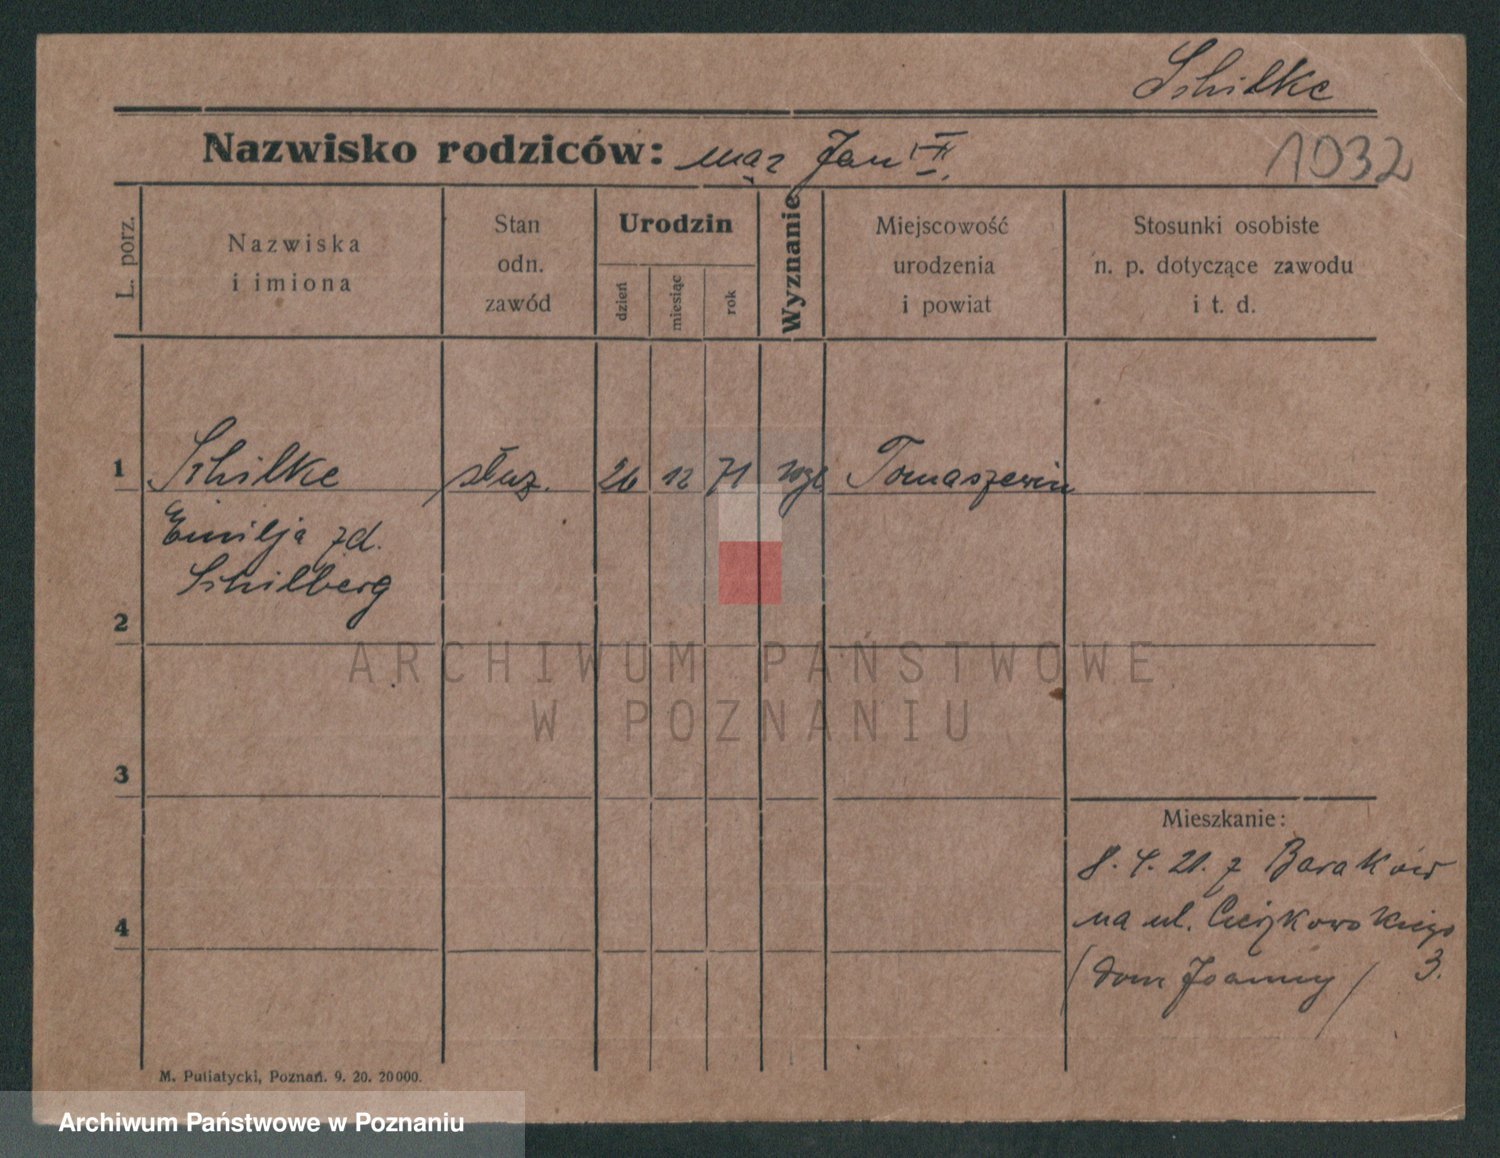 Schilke
Nazwisko rodziców: mąż Jan II.
1032
L. porz.
Nazwiska
i imiona
Stan
odn.
zawód
Urodzin
dzień
miesiąc
rok
Wyznanie
Miejscowość
urodzenia
i powiat
Stosunki osobiste
n. p. dotyczące zawodu
i t. d.
1 Schilke służ. 26 12 71 Tomaszewin
Emilja zd.
Schilberg
2
ARCHIWUM PAŃSTWOWE
W POZNANIU
3
Mieszkanie:
8. 4. 21. z Baraków
4
na ul. Cieszkowskiego
(dom Joanny) 3.
M. Putiatycki, Poznań. 9. 20. 20000.
Archiwum Państwowe w Poznaniu